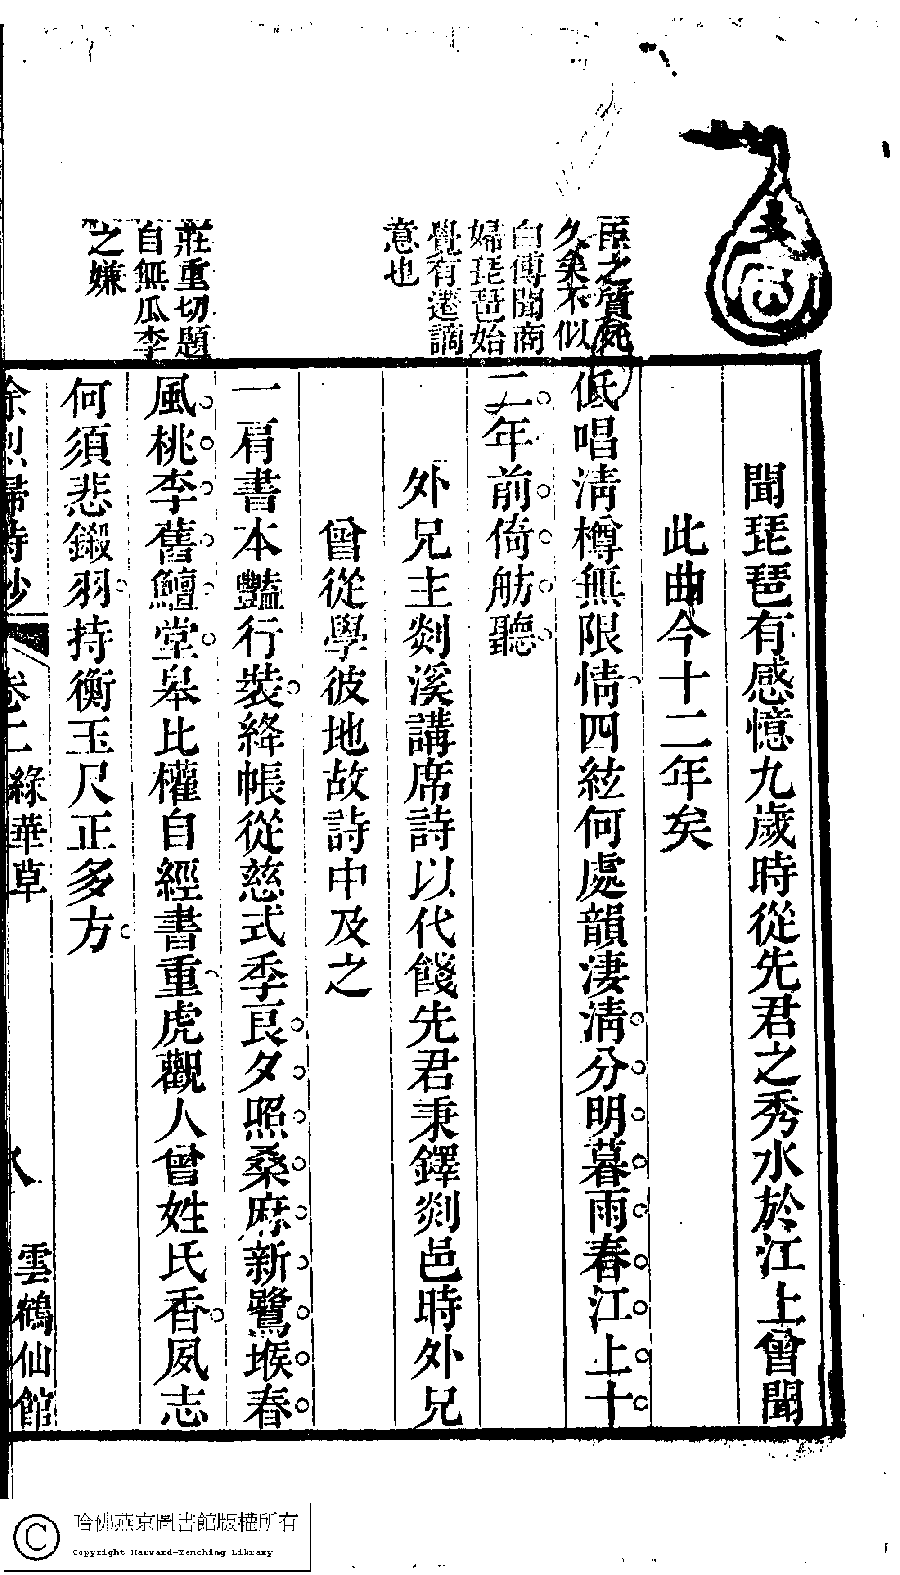 臣之質死
久矣不似
白傅聞商
婦琵琶始
覺有遷謫
意也
莊重切題
自無瓜李
之嫌
聞琵琶有感憶九歲時從先君之秀水於江上曾聞
此曲今十二年矣
低唱淸樽無限情四絃何處韻淒淸分明暮雨春江上十
二年前倚舫聽
外兄主剡溪講席詩以代餞先君秉鐸剡邑時外兄
曾從學彼地故詩中及之
一肩書本豔行裝絳帳從慈式季良夕照桑麻新鷺堠春
風桃李舊鱣堂皋比權自經書重虎觀人曾姓氏香夙志
何須悲鎩羽持衡玉尺正多方
余烈婦詩鈔 卷二 綠華草 八 雲鶴仙館
哈佛燕京圖書館版權所有
Copyright Harvard-Yenching Library